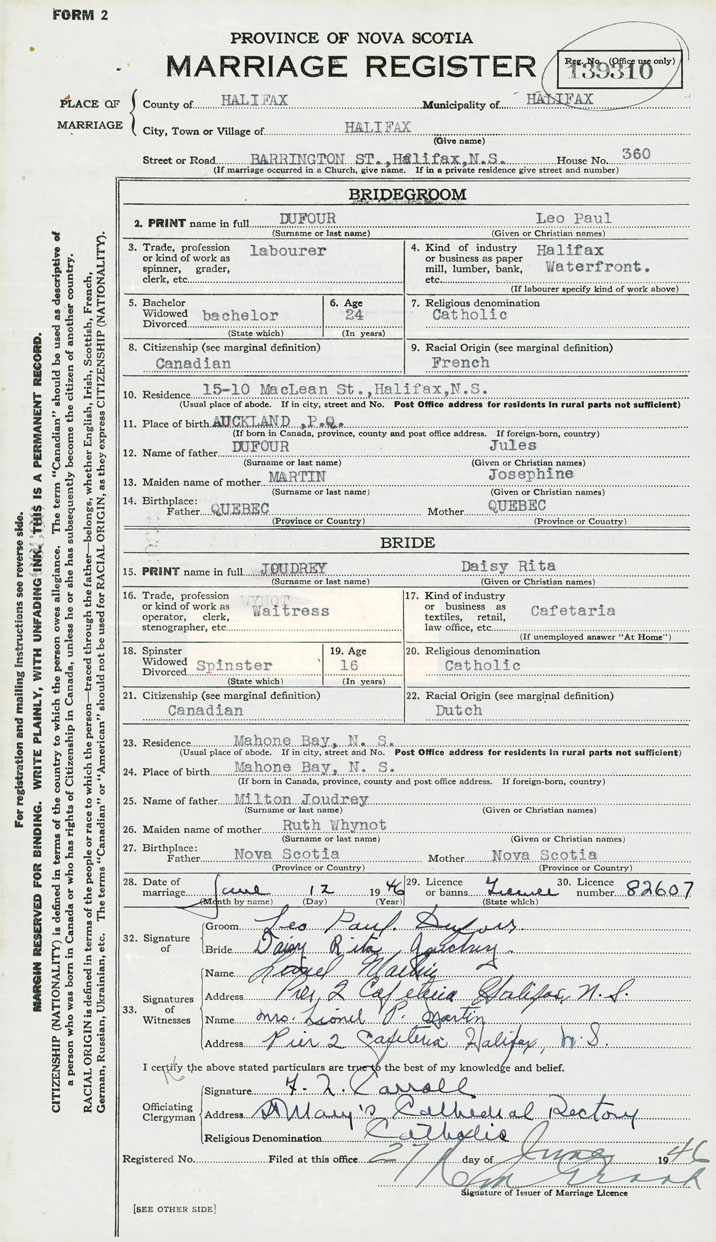 FORM 2
PROVINCE OF NOVA SCOTIA
MARRIAGE REGISTER
Reg. No. (Office use only)
139310
PLACE OF MARRIAGE
County of HALIFAX Municipality of HALIFAX
City, Town or Village of HALIFAX
(Give name)
Street or Road BARRINGTON ST.,Halifax,N.S. House No. 360
(If marriage occurred in a Church, give name. If in a private residence give street and number)
BRIDEGROOM
2. PRINT name in full DUFOUR Leo Paul
(Surname or last name) (Given or Christian names)
3. Trade, profession or kind of work as spinner, grader, clerk, etc. labourer
4. Kind of industry or business as paper mill, lumber, bank, etc. Halifax Waterfront.
(If labourer specify kind of work above)
5. Bachelor Widowed Divorced bachelor
(State which)
6. Age 24
(In years)
7. Religious denomination
Catholic
8. Citizenship (see marginal definition)
Canadian
9. Racial Origin (see marginal definition)
French
10. Residence 15-10 MacLean St.,Halifax,N.S.
(Usual place of abode. If in city, street and No. Post Office address for residents in rural parts not sufficient)
11. Place of birth AUCKLAND ,P.Q.
(If born in Canada, province, county and post office address. If foreign-born, country)
12. Name of father DUFOUR Jules
(Surname or last name) (Given or Christian names)
13. Maiden name of mother MARTIN Josephine
(Surname or last name) (Given or Christian names)
14. Birthplace:
Father QUEBEC Mother QUEBEC
(Province or Country) (Province or Country)
BRIDE
15. PRINT name in full JOUDREY Daisy Rita
(Surname or last name) (Given or Christian names)
16. Trade, profession or kind of work as operator, clerk, stenographer, etc. Waitress
17. Kind of industry or business as textiles, retail, law office, etc. Cafetaria
(If unemployed answer "At Home")
18. Spinster Widowed Divorced Spinster
(State which)
19. Age 16
(In years)
20. Religious denomination
Catholic
21. Citizenship (see marginal definition)
Canadian
22. Racial Origin (see marginal definition)
Dutch
23. Residence Mahone Bay, N. S.
(Usual place of abode. If in city, street and No. Post Office address for residents in rural parts not sufficient)
24. Place of birth Mahone Bay, N. S.
(If born in Canada, province, county and post office address. If foreign-born, country)
25. Name of father Milton Joudrey
(Surname or last name) (Given or Christian names)
26. Maiden name of mother Ruth Whynot
(Surname or last name) (Given or Christian names)
27. Birthplace:
Father Nova Scotia Mother Nova Scotia
(Province or Country) (Province or Country)
28. Date of marriage June 12 1946
(Month by name) (Day) (Year)
29. Licence or banns License
(State which)
30. Licence number 82607
32. Signature of
Groom Leo Paul Dufour
Bride Daisy Rita
33. Signatures of Witnesses
Name Lionel Martin
Address Pier 2 Cafeteria Halifax, N.S.
Name Mrs. Lionel P. Martin
Address Pier 2 Cafeteria Halifax, N.S.
I certify the above stated particulars are true to the best of my knowledge and belief.
Officiating Clergyman
Signature Carroll
Address St Mary's Cathedral Rectory
Religious Denomination Catholic
Registered No. Filed at this office 27 day of June 1946
Signature of Issuer of Marriage Licence
[SEE OTHER SIDE]
For registration and mailing instructions see reverse side.
MARGIN RESERVED FOR BINDING. WRITE PLAINLY, WITH UNFADING INK. THIS IS A PERMANENT RECORD.
CITIZENSHIP (NATIONALITY) is defined in terms of the country to which the person owes allegiance. The term "Canadian" should be used as descriptive of
a person who was born in Canada or who has rights of Citizenship in Canada, unless he or she has subsequently become the citizen of another country.
RACIAL ORIGIN is defined in terms of the people or race to which the person—traced through the father—belongs, whether English, Irish, Scottish, French,
German, Russian, Ukrainian, etc. The terms "Canadian" or "American" should not be used for RACIAL ORIGIN, as they express CITIZENSHIP (NATIONALITY).